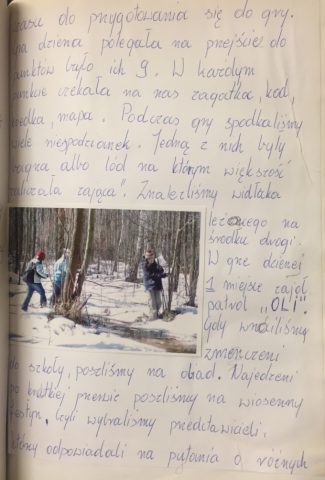 czasu do przygotowania się do gry.
na dzienna polegała na przejściu do
punktów było ich 9. W każdym
punkcie czekała na nas zagadka, kod,
mapa. Podczas gry spotkaliśmy
wiele niespodzianek. Jedną z nich były
bagna albo lód na którym większość
"zaliczała zająca". Znaleźliśmy widłaka
leżącego na
środku drogi.
W grze dziennej
1 miejsce zajął
patrol "OLI".
Gdy wróciliśmy
zmęczeni
do szkoły, poszliśmy na obiad. Najedzeni
po krótkiej przerwie poszliśmy na wiosenny
festyn, czyli wybraliśmy przedstawicieli,
którzy odpowiadali na pytania o różnych